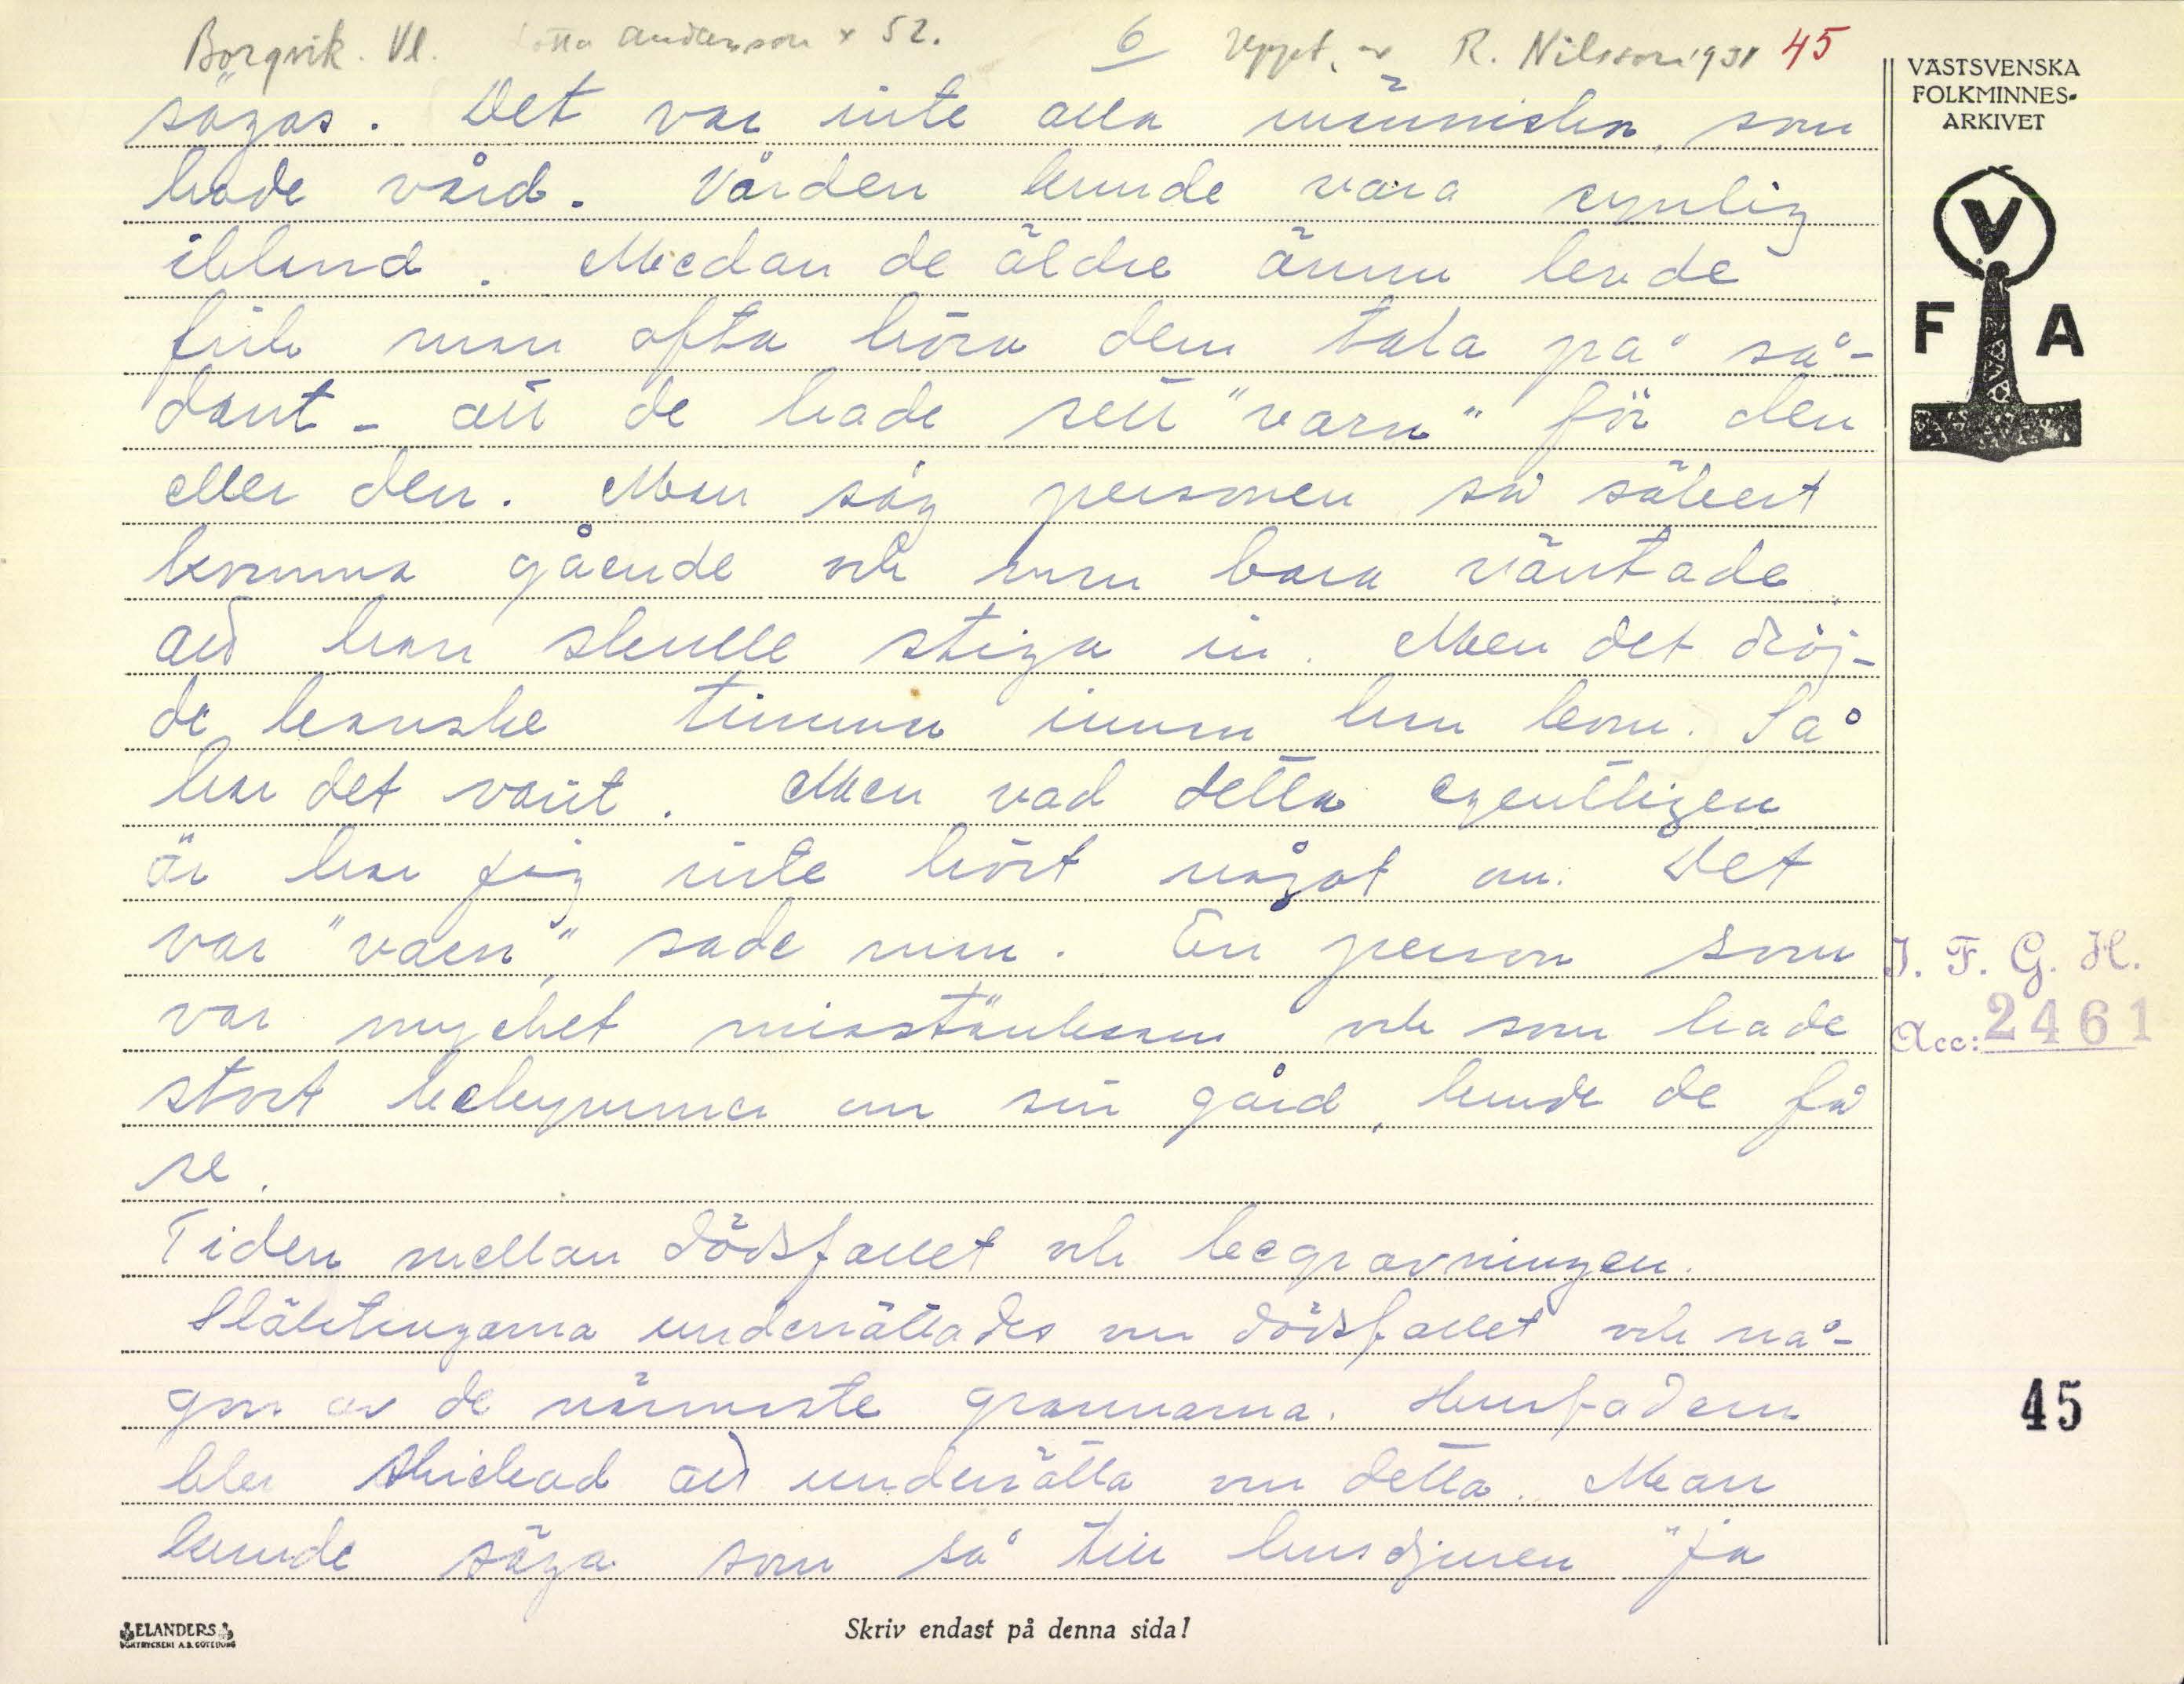 Borgvik. Vl. Lotta Andersson x 52. 6 Uppt. av R. Nilsson 1931 45
VÄSTSVENSKA
FOLKMINNES-
ARKIVET
V
F A
sägas. Det var inte alla människor som
hade vård. Vården kunde vara synlig
ibland. Medan de äldre ännu levde
fick man ofta höra dem tala på så-
dant - att de hade sett "varn" för den
eller den. Man såg personen så säkert
komma gående och man bara väntade
att han skulle stiga in. Men det dröj-
de kanske timmar innan han kom. Så
har det varit. Men vad detta egentligen
är har jag inte hört något om. Det
var "vaen", sade man. En person som
var mycket misstänksam och som hade
stort bekymmer om sin gård, kunde de få
se.
Tiden mellan dödsfallet och begravningen.
Släktingarna underrättades om dödsfallet och nå-
gon av de närmaste grannarna. Husfadern
blev skickad att underrätta om detta. Man
kunde säga som så till husdjuren "ja
I. F. G. H.
Acc: 2461
45
ELANDERS
BOKTRYCKERI A.B. GÖTEBORG
Skriv endast på denna sida!